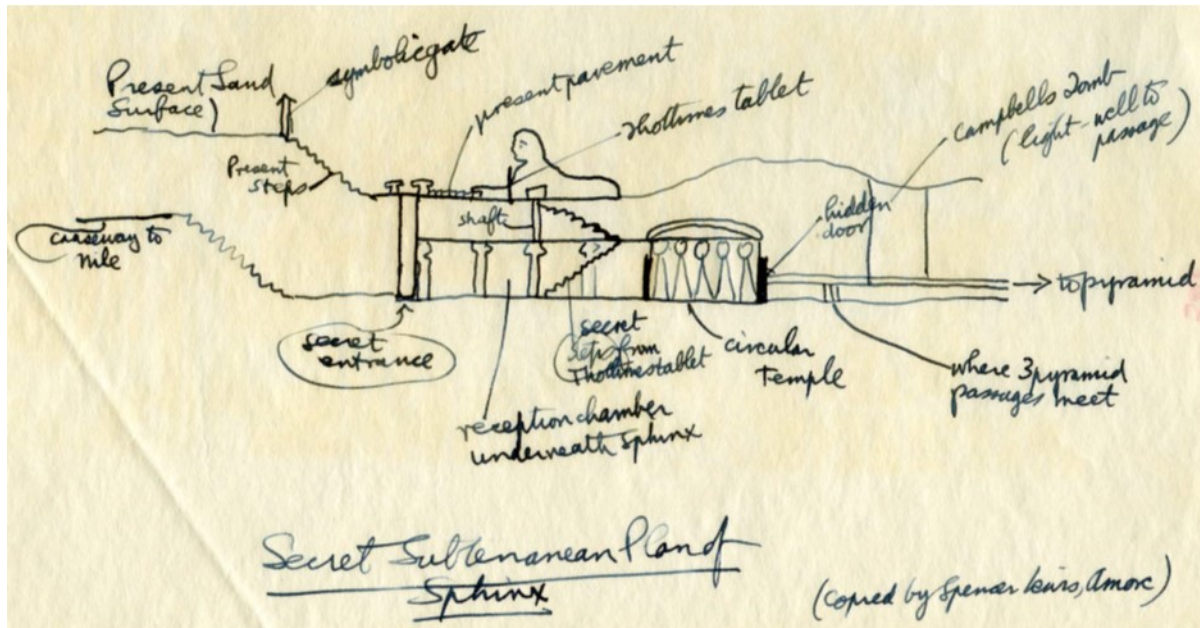 Present Sand
Surface)
symbolic gate
present pavement
Thottmes tablet
Campbells Tomb
(light-well to
passage)
Present
steps
shaft
hidden
door
causeway to
nile
to pyramid
secret
entrance
secret
steps from
Thottmes tablet
circular
Temple
where 3 pyramid
passages meet
reception chamber
underneath Sphinx
Secret Subterranean Plan of
Sphinx
(copied by Spencer Lewis, Amorc)